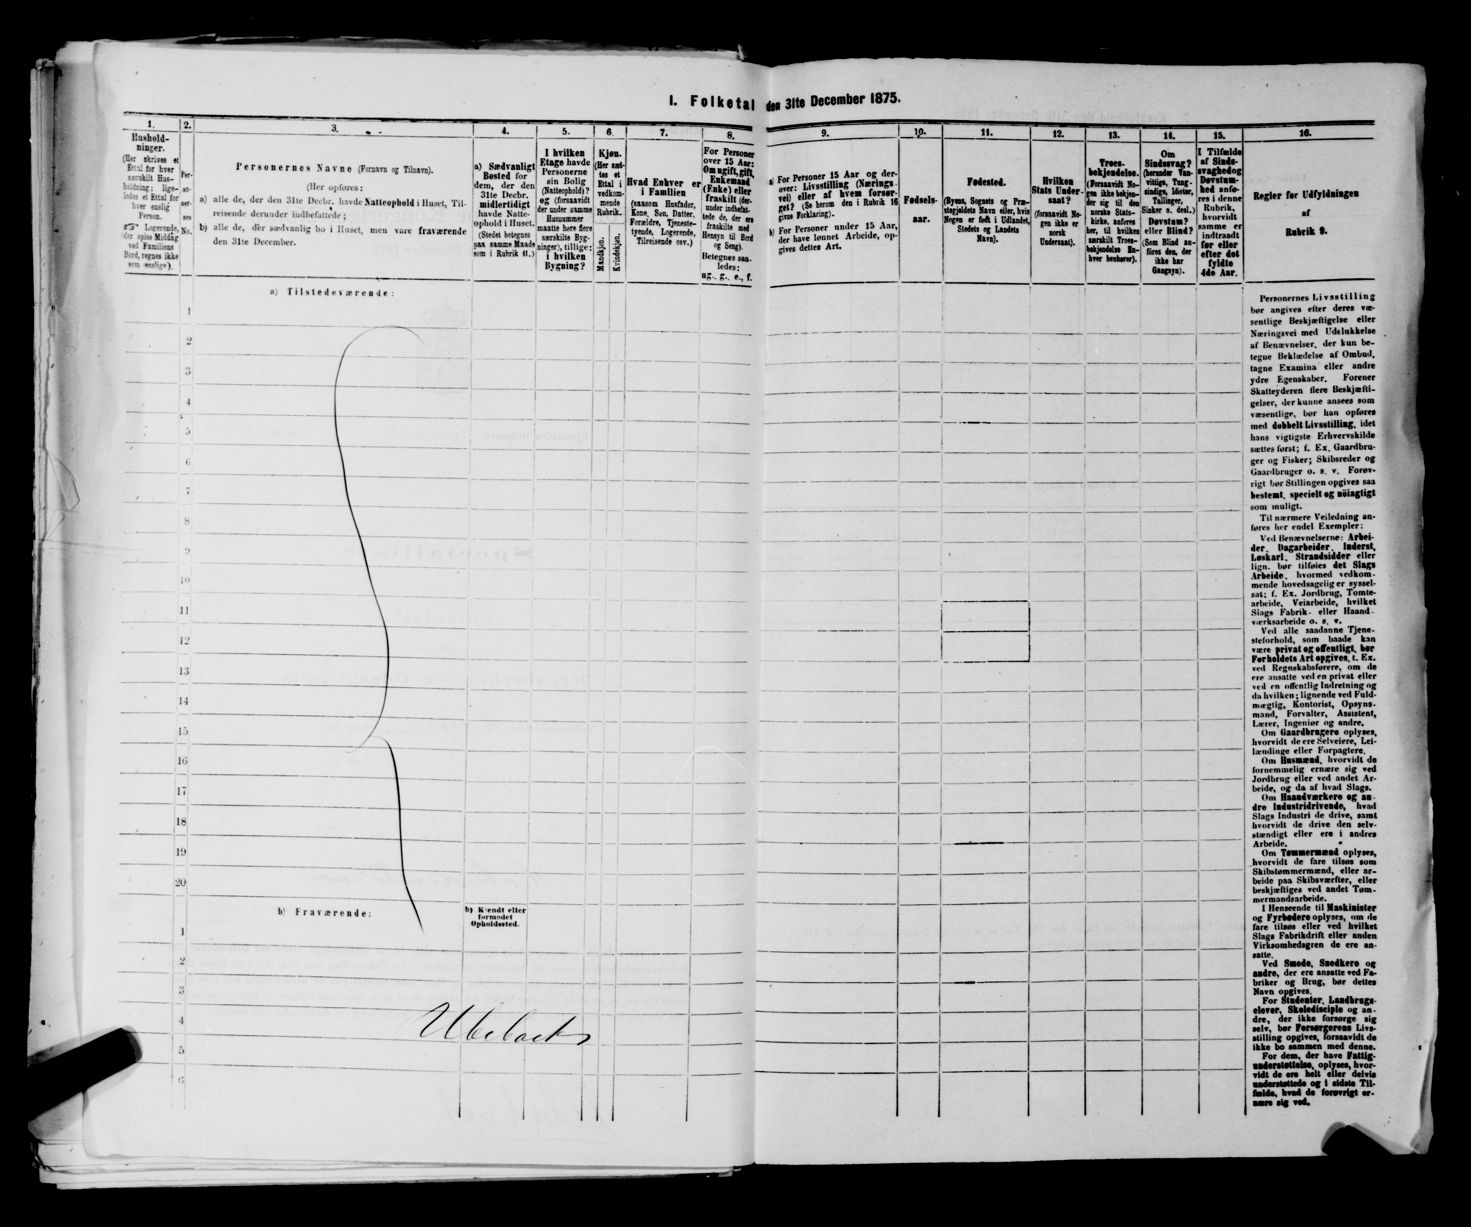 I. Folketal den 31te December 1875.
1.
Hushold-
ninger.
(Her skrives et
Ettal for hver
særskilt Hus-
holdning; lige-
ledes et Ettal for
hver enslig
Person.
Logerende,
der spise Middag
ved Familiens
Bord, regnes ikke
som enslige).
2.
Per-
so-
ner-
nes
No.
3.
Personernes Navne (Fornavn og Tilnavn).
(Her opføres:
a) alle de, der den 31te Decbr. havde Natteophold i Huset, Til-
reisende derunder indbefattede;
b) alle de, der sædvanlig bo i Huset, men vare fraværende
den 31te December.
4.
a) Sædvanligt
Bosted for
dem, der den
31te Decbr.
midlertidigt
havde Natte-
ophold i Huset.
(Stedet betegnes
paa samme Maade
som i Rubrik 11.)
5.
I hvilken
Etage havde
Personerne
sin Bolig
(Natteophold)?
og (forsaavidt
der under samme
Husnummer
maatte høre flere
særskilte Byg-
ninger), tillige:
i hvilken
Bygning?
6.
Kjøn.
(Her sæt-
tes et
Ettal i
vedkom-
mende
Rubrik.
Mandkjøn.
Kvindekjøn.
7.
Hvad Enhver er
i Familien
(saasom Husfader,
Kone, Søn, Datter,
Forældre, Tjeneste-
tyende, Logerende,
Tilreisende osv.)
8.
For Personer
over 15 Aar:
Om ugift, gift,
Enkemand
(Enke) eller
fraskilt (der-
under indbefat-
tede de, der ere
fraskilte med
Hensyn til Bord
og Seng).
Betegnes saa-
ledes:
ug., g., e., f.
9.
a) For Personer 15 Aar og der-
over: Livsstilling (Nærings-
vei) eller af hvem forsør-
get? (Se herom den i Rubrik 16
givne Forklaring).
b) For Personer under 15 Aar,
der have lønnet Arbeide, op-
gives dettes Art.
10.
Fødsels-
aar.
11.
Fødested.
(Byens, Sognets og Præ-
stegjeldets Navn eller, hvis
Nogen er født i Udlandet,
Stedets og Landets
Navn).
12.
Hvilken
Stats Under-
saat?
(forsaavidt No-
gen ikke er
norsk
Undersaat).
13.
Troes-
bekjendelse.
(Forsaavidt No-
gen ikke bekjen-
der sig til den
norske Stats-
kirke, anføres
her, til hvilken
særskilt Troes-
bekjendelse En-
hver henhører).
14.
Om
Sindssvag?
(herunder Van-
vittige, Tung-
sindige, Idioter,
Tullinger,
Sinker o. desl.)
Døvstum?
eller Blind?
(Som Blind an-
føres den, der
ikke har
Gangsyn).
15.
I Tilfælde
af Sinds-
svaghed og
Døvstum-
hed anfø-
res i denne
Rubrik,
hvorvidt
samme er
indtraadt
før eller
efter det
fyldte
4de Aar.
16.
Regler for Udfyldningen
af
Rubrik 9.
a) Tilstedeværende:
1
2
3
4
5
6
7
8
9
10
11
12
13
14
15
16
17
18
19
20
b) Fraværende:
b) Kjendt eller
formodet
Opholdssted.
1
2
3
4
5
6
Ubeboet
Personernes Livsstilling
bør angives efter deres væ-
sentlige Beskjæftigelse eller
Næringsvei med Udelukkelse
af Benævnelser, der kun be-
tegne Beklædelse af Ombud,
tagne Examina eller andre
ydre Egenskaber. Forener
Skatteyderen flere Beskjæfti-
gelser, der kunne ansees som
væsentlige, bør han opføres
med dobbelt Livsstilling, idet
hans vigtigste Erhvervskilde
sættes først; f. Ex. Gaardbru-
ger og Fisker; Skibsreder og
Gaardbruger o. s. v. Forøv-
rigt bør Stillingen opgives saa
bestemt, specielt og nøiagtigt
som muligt.
Til nærmere Veiledning an-
føres her endel Exempler:
Ved Benævnelserne: Arbei-
der, Dagarbeider, Inderst,
Løskarl, Strandsidder eller
lign. bør tilføies det Slags
Arbeide, hvormed vedkom-
mende hovedsagelig er syssel-
sat; f. Ex. Jordbrug, Tomte-
arbeide, Veiarbeide, hvilket
Slags Fabrik- eller Haand-
værksarbeide o. s. v.
Ved alle saadanne Tjene-
steforhold, som baade kan
være privat og offentligt, bør
Forholdets Art opgives, f. Ex.
ved Regnskabsførere, om de
ere ansatte ved en privat eller
ved en offentlig Indretning og
da hvilken; lignende ved Fuld-
mægtig, Kontorist, Opsyns-
mand, Forvalter, Assistent,
Lærer, Ingeniør og andre.
Om Gaardbrugere oplyses,
hvorvidt de ere Selveiere, Lei-
lændinge eller Forpagtere.
Om Husmænd, hvorvidt de
fornemmelig ernære sig ved
Jordbrug eller ved andet Ar-
beide, og da af hvad Slags.
Om Haandværkere og an-
dre Industridrivende, hvad
Slags Industri de drive, samt
hvorvidt de drive den selv-
stændigt eller ere i andres
Arbeide.
Om Tømmermænd oplyses,
hvorvidt de fare tilsøs som
Skibstømmermænd, eller ar-
beide paa Skibsværfter, eller
beskjæftiges ved andet Tøm-
mermandsarbeide.
I Henseende til Maskinister
og Fyrbødere oplyses, om de
fare tilsøs eller ved hvilket
Slags Fabrikdrift eller anden
Virksomhedsgren de ere an-
satte.
Ved Smede, Snedkere og
andre, der ere ansatte ved Fa-
briker og Brug, bør dettes
Navn opgives.
For Studenter, Landbrugs-
elever, Skoledisciple og an-
dre, der ikke forsørge sig
selv, bør Forsørgerens Livs-
stilling opgives, forsaavidt de
ikke bo sammen med denne.
For dem, der have Fattig-
understøttelse, oplyses, hvor-
vidt de ere helt eller delvis
understøttede og i sidste Til-
fælde, hvad de forøvrigt er-
nære sig ved.